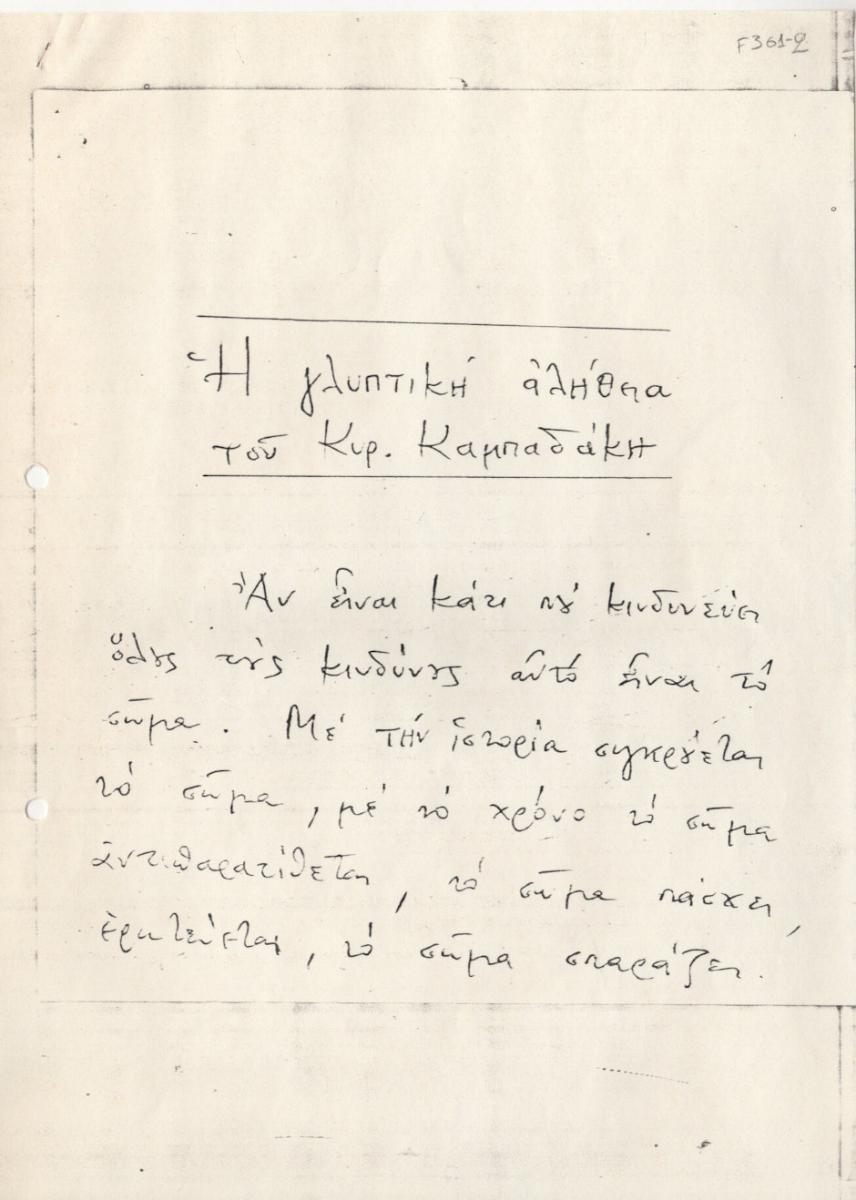 F361-2
Ἡ γλυπτική ἀλήθεια
τοῦ Κυρ. Καμπαδάκη
Ἄν εἶναι κάτι πού κινδυνεύει
ὅλους τούς κινδύνους αὐτό εἶναι τό
σῶμα. Μέ τήν ἱστορία συγκρούεται
τό σῶμα, μέ τό χρόνο τό σῶμα
ἀντιπαρατίθεται, τό σῶμα πάσχει,
ἐρωτεύεται, τό σῶμα σπαράζει.